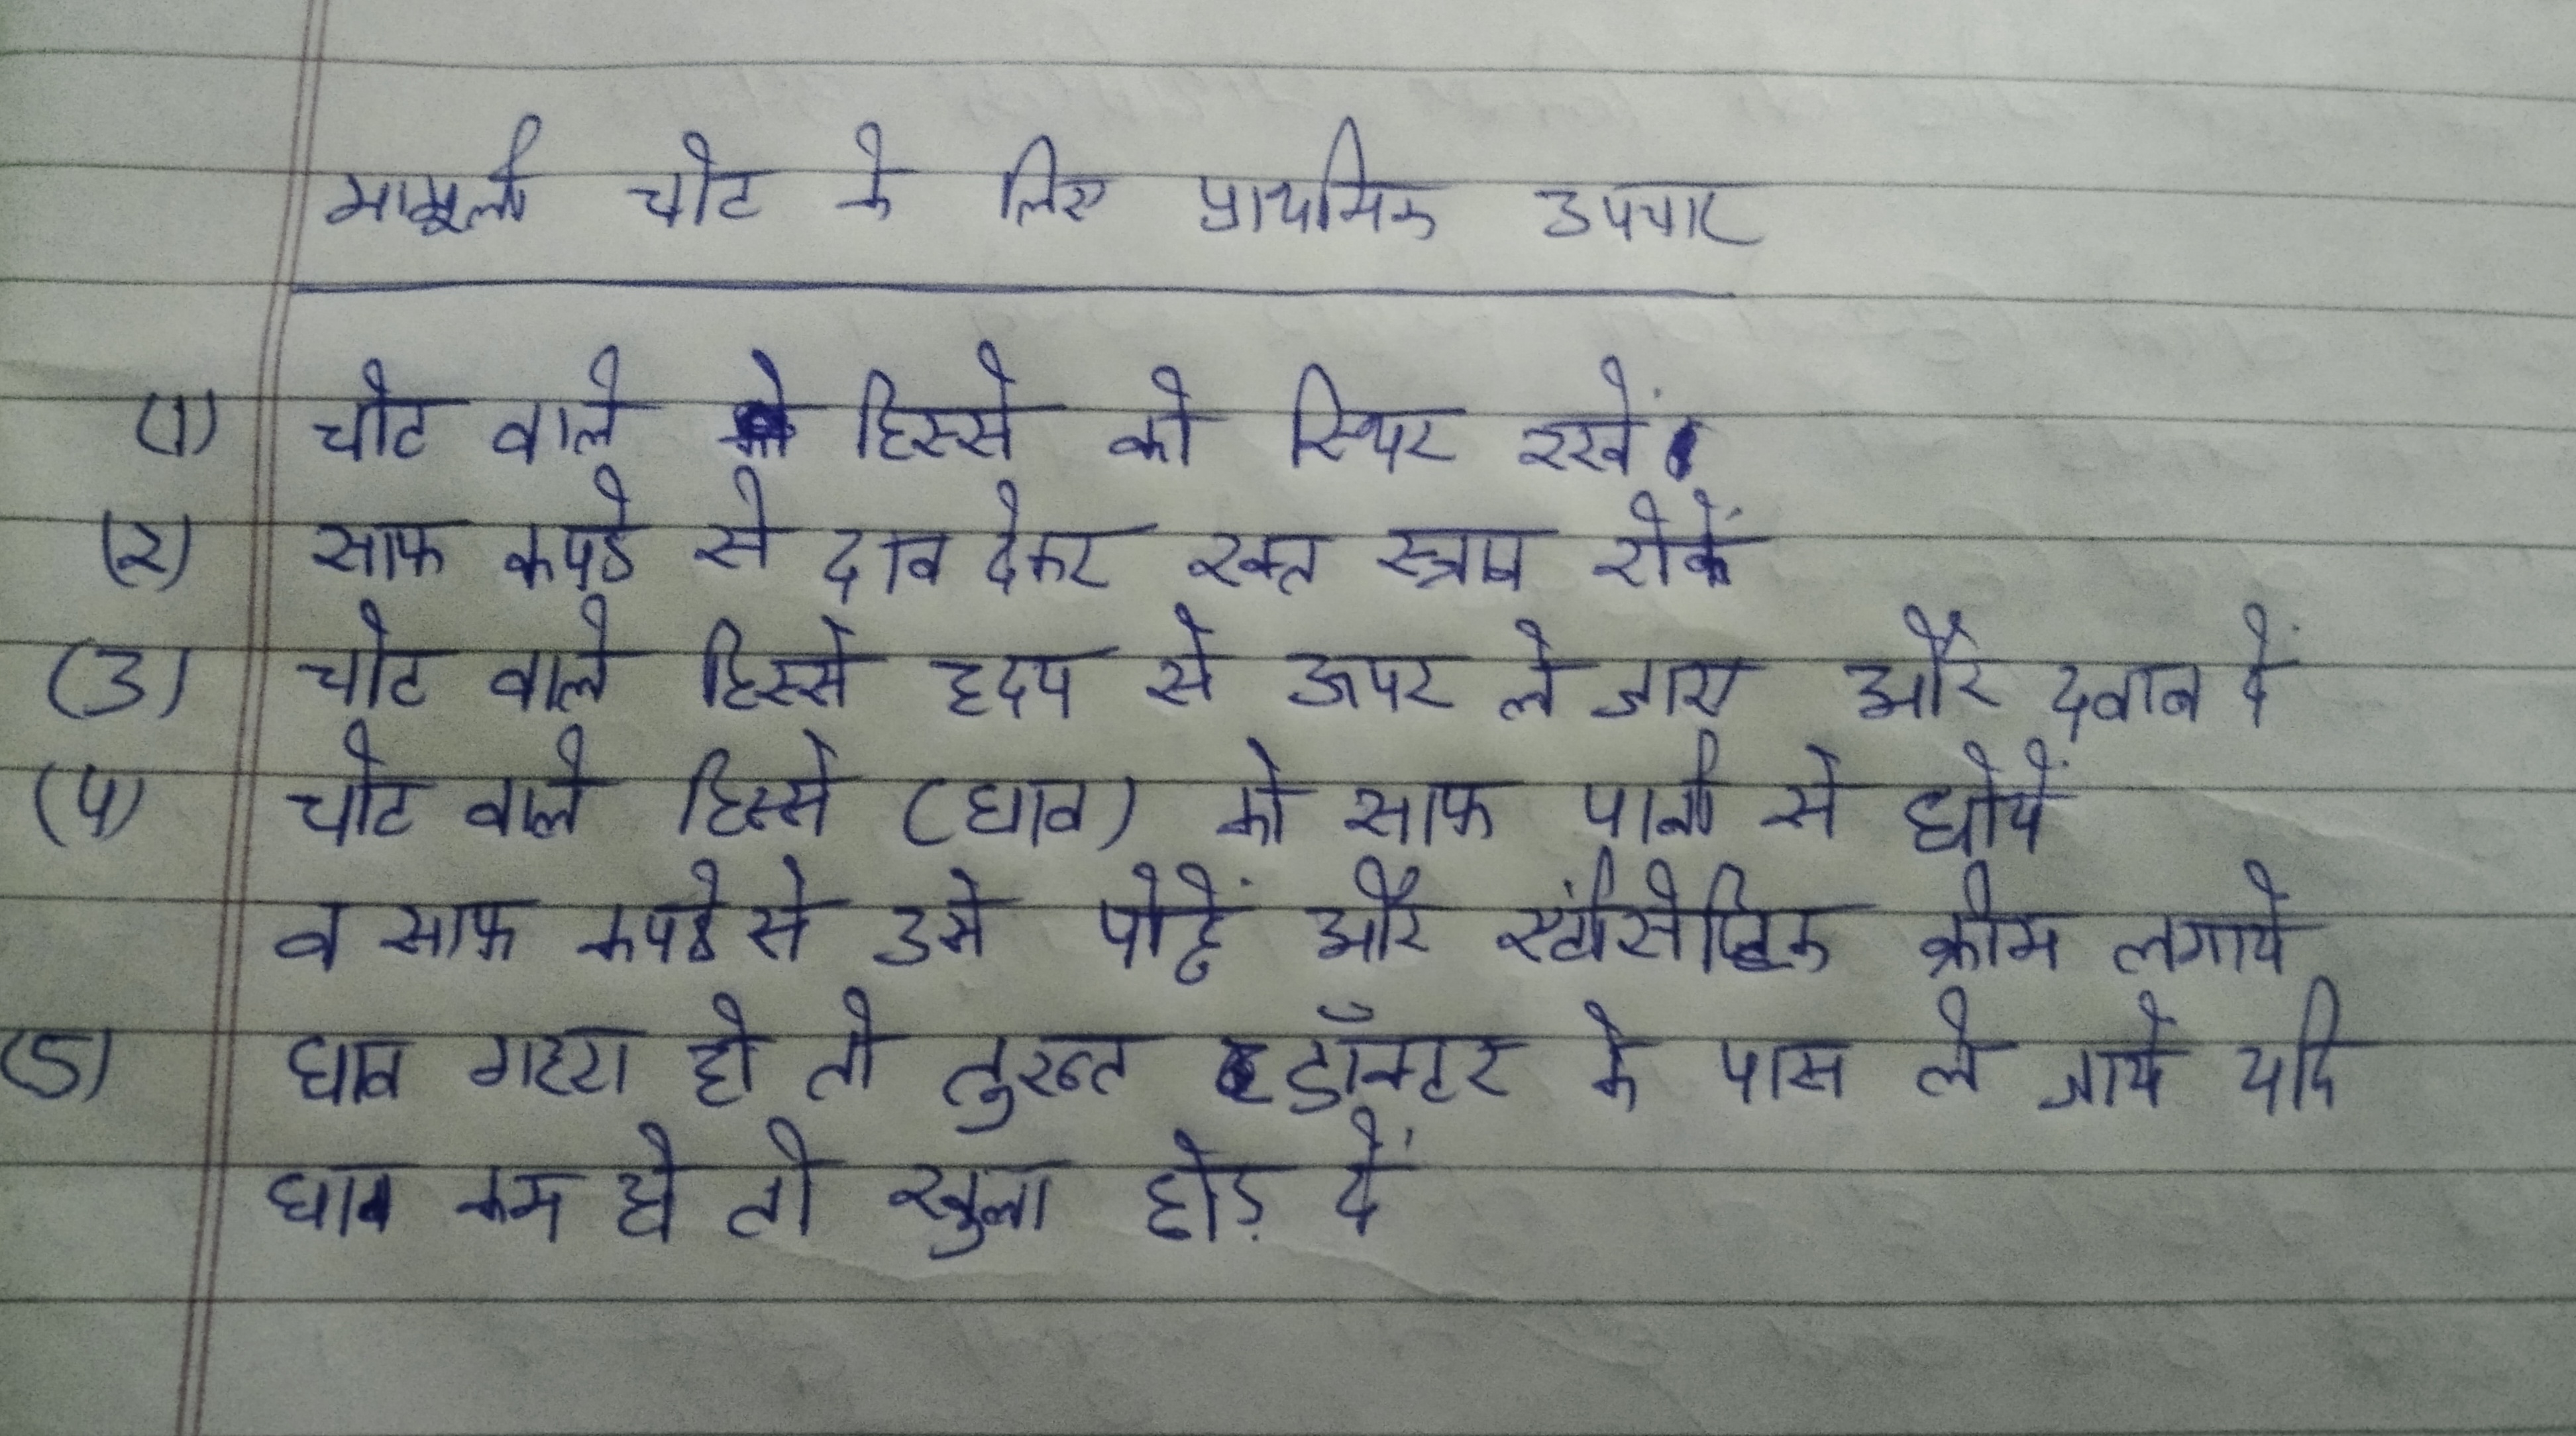 मामूली चोट के लिए प्राथमिक उपचार
(1) चोट वाले हिस्से को स्थिर रखें।
(२) साफ कपडे से दाव देकर रक्त स्त्राव रोकें
(3) चोट वाले हिस्से हृदय से ऊपर ले जाए और दवाव दें
(4) चोट वाले हिस्से (घाव) को साफ पानी से धोयें
व साफ कपडे से उसे पोछें और एंटीसेप्टिक क्रीम लगाये
(5) घाव गहरा हो तो तुरन्त डॉक्टर के पास ले जाये यदि
घाव कम हो तो खुला छोड़ दें